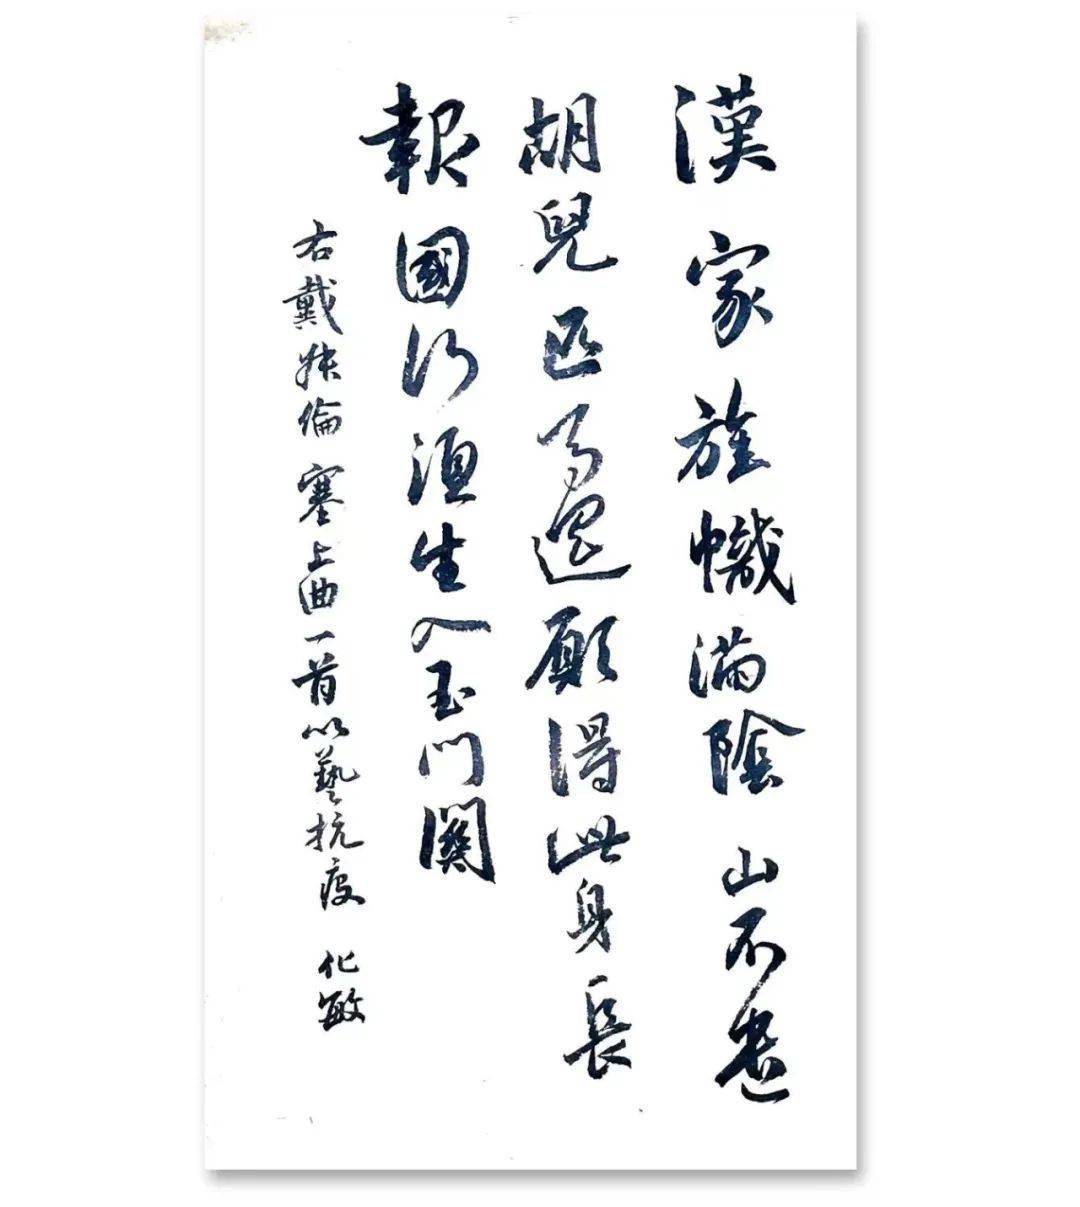 漢家旌幟滿陰山不遣
胡兒匹馬還願得此身長
報國何須生入玉門關
右戴叔倫塞上曲一首以藝抗疫 化敏